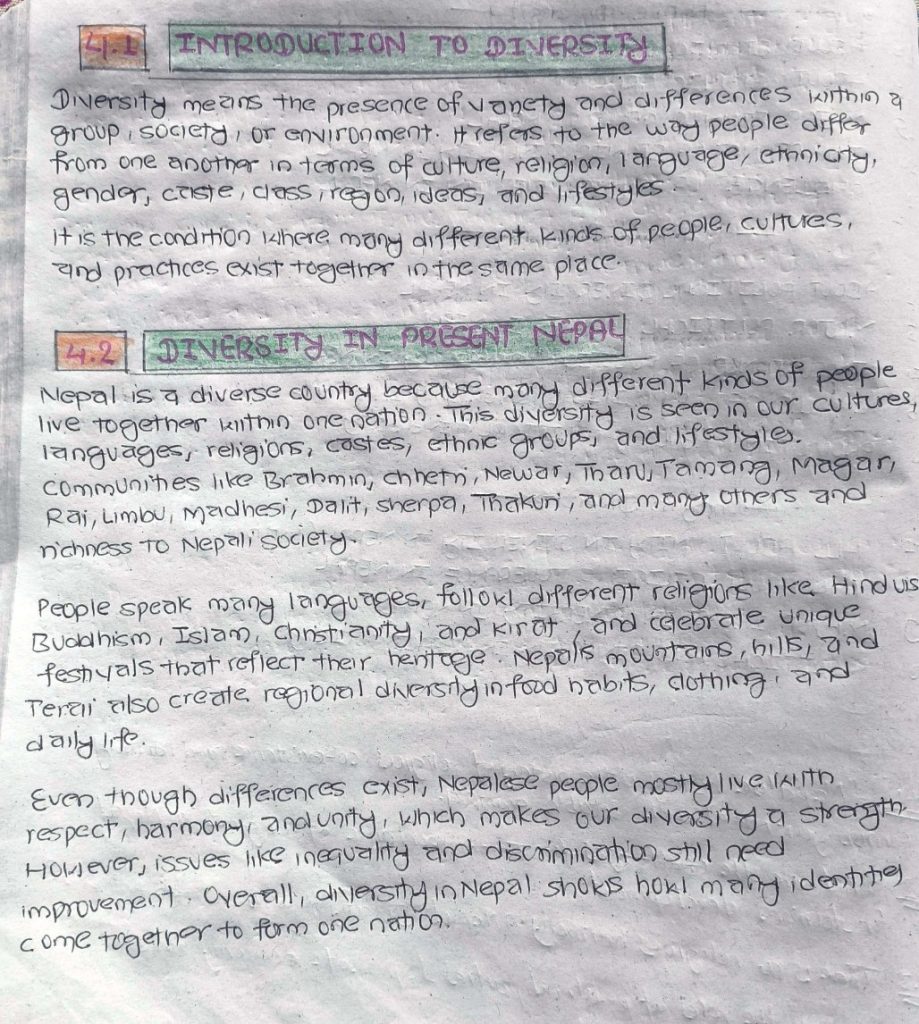 4.1 INTRODUCTION TO DIVERSITY
Diversity means the presence of variety and differences within a
group, society, or environment. It refers to the way people differ
from one another in terms of culture, religion, language, ethnicity,
gender, caste, class, region, ideas, and lifestyles.
It is the condition where many different kinds of people, cultures,
and practices exist together in the same place.
4.2 DIVERSITY IN PRESENT NEPAL
Nepal is a diverse country because many different kinds of people
live together within one nation. This diversity is seen in our cultures,
languages, religions, castes, ethnic groups, and lifestyles.
communities like Brahmin, Chhetri, Newar, Tharu, Tamang, Magar,
Rai, Limbu, Madhesi, Dalit, sherpa, Thakuri, and many others and
richness to Nepali society.
People speak many languages, follow different religions like Hinduis
Buddhism, Islam, Christianity, and Kirat, and celebrate unique
festivals that reflect their heritage. Nepal's mountains, hills, and
Terai also create regional diversity in food habits, clothing, and
daily life.
Even though differences exist, Nepalese people mostly live with
respect, harmony, and unity, which makes our diversity a strength.
However, issues like inequality and discrimination still need
improvement. Overall, diversity in Nepal shows how many identities
come together to form one nation.